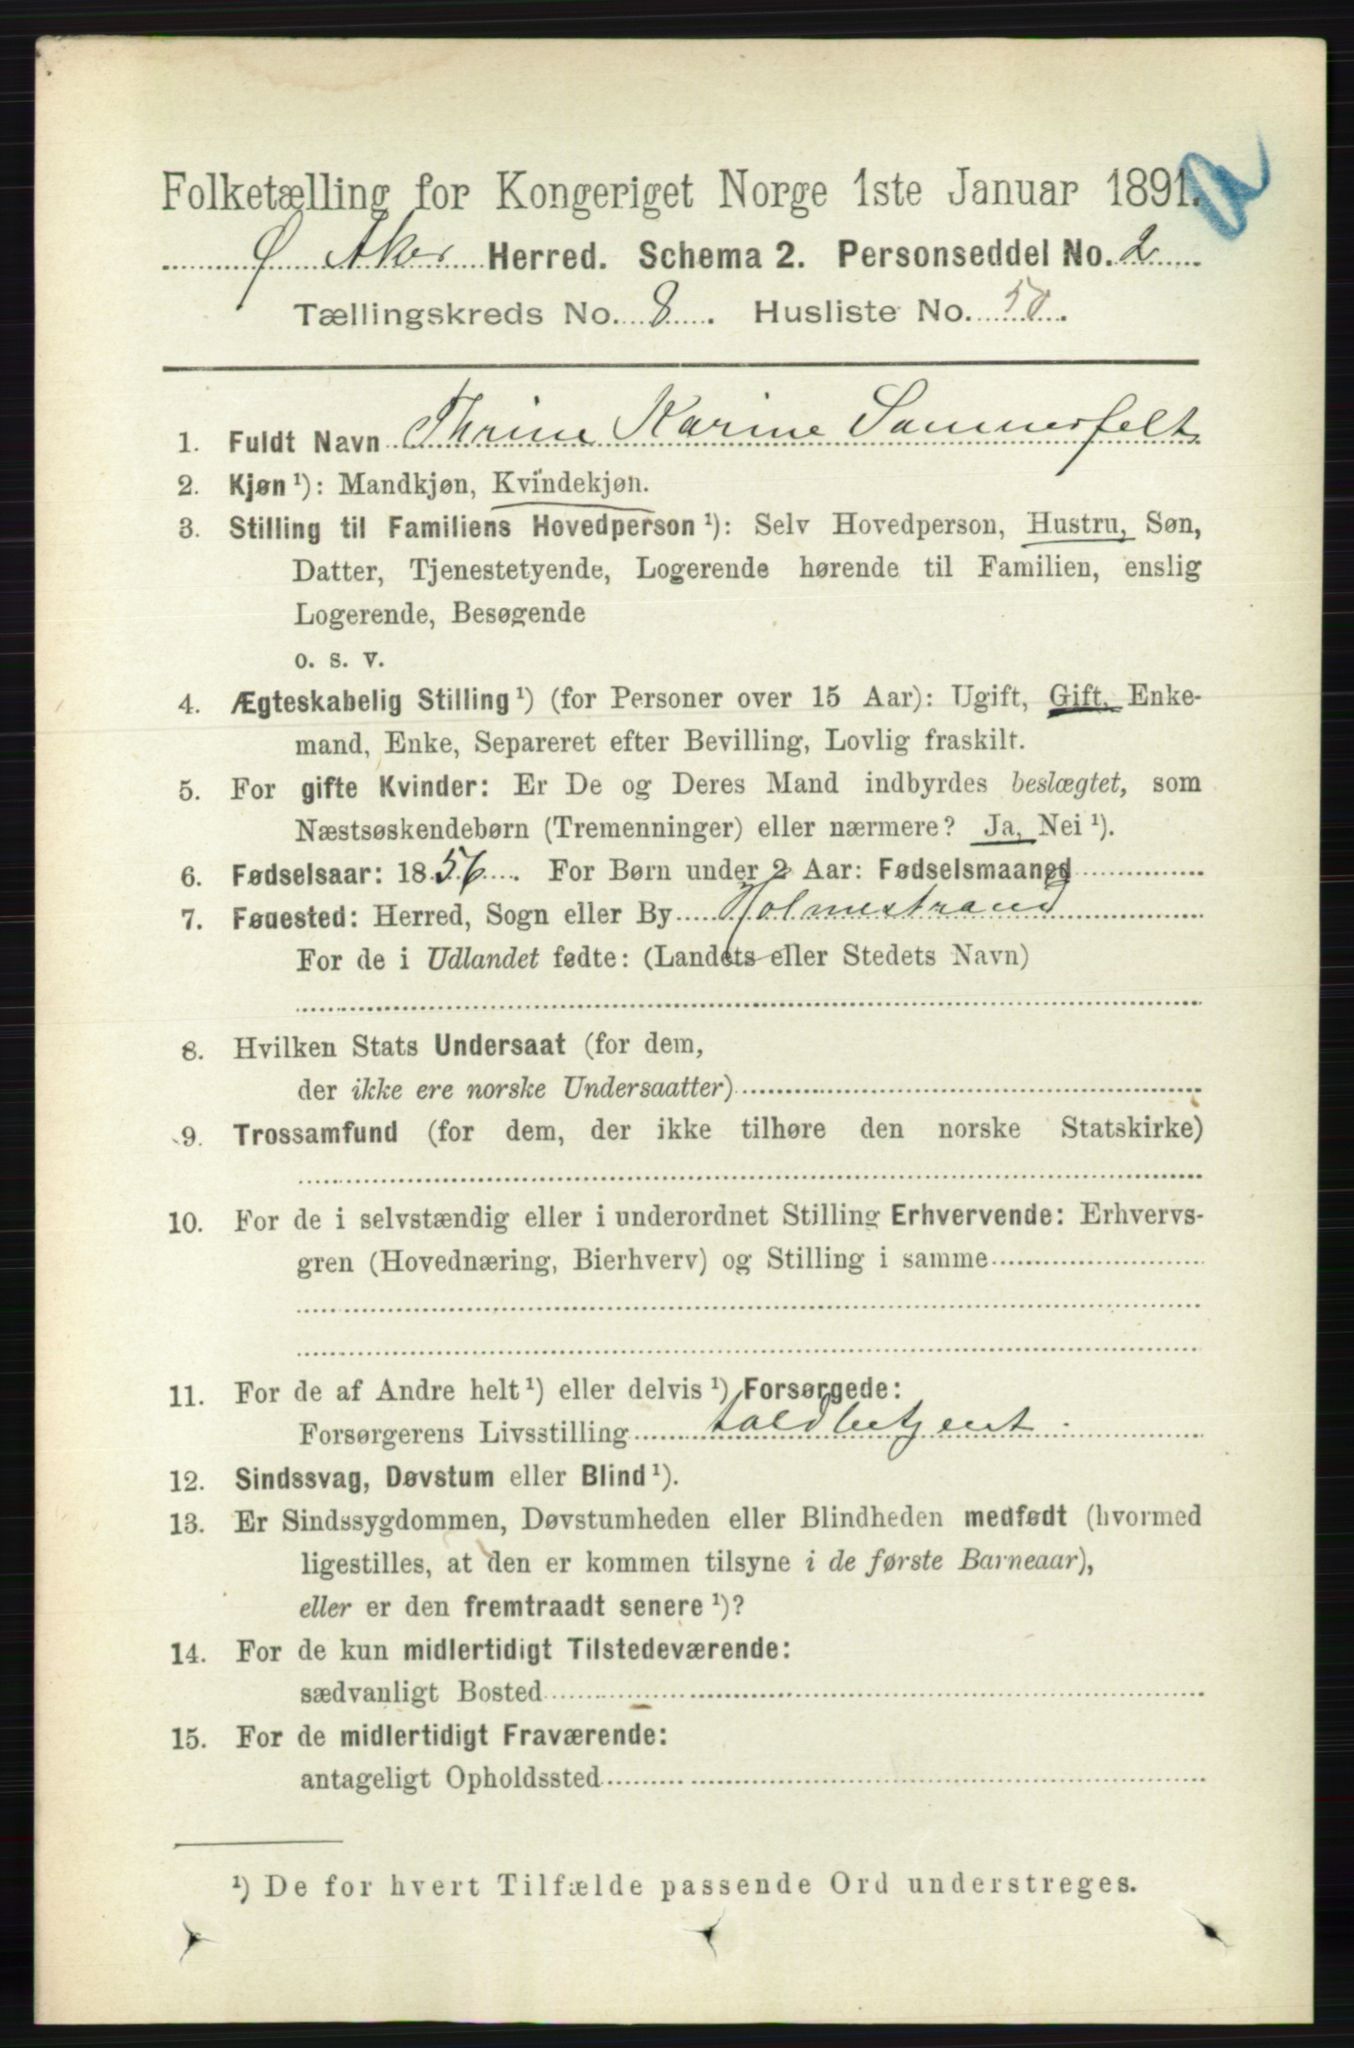 Folketælling for Kongeriget Norge 1ste Januar 1891.
Ø Aker Herred. Schema 2. Personseddel No. 2
Tællingskreds No. 8. Husliste No. 50.
1. Fuldt Navn Thrine Karine Sommerfelt
2. Kjøn ¹): Mandkjøn, Kvindekjøn.
3. Stilling til Familiens Hovedperson ¹): Selv Hovedperson, Hustru, Søn,
Datter, Tjenestetyende, Logerende hørende til Familien, enslig
Logerende, Besøgende
o. s. v.
4. Ægteskabelig Stilling ¹) (for Personer over 15 Aar): Ugift, Gift, Enke-
mand, Enke, Separeret efter Bevilling, Lovlig fraskilt.
5. For gifte Kvinder: Er De og Deres Mand indbyrdes beslægtet, som
Næstsøskendebørn (Tremenninger) eller nærmere? Ja, Nei ¹).
6. Fødselsaar: 1856. For Børn under 2 Aar: Fødselsmaaned
7. Fødested: Herred, Sogn eller By Holmestrand
For de i Udlandet fødte: (Landets eller Stedets Navn)
8. Hvilken Stats Undersaat (for dem,
der ikke ere norske Undersaatter)
9. Trossamfund (for dem, der ikke tilhøre den norske Statskirke)
10. For de i selvstændig eller i underordnet Stilling Erhvervende: Erhvervs-
gren (Hovednæring, Bierhverv) og Stilling i samme
11. For de af Andre helt ¹) eller delvis ¹) Forsørgede:
Forsørgerens Livsstilling toldbetjent.
12. Sindssvag, Døvstum eller Blind ¹).
13. Er Sindssygdommen, Døvstumheden eller Blindheden medfødt (hvormed
ligestilles, at den er kommen tilsyne i de første Barneaar),
eller er den fremtraadt senere ¹)?
14. For de kun midlertidigt Tilstedeværende:
sædvanligt Bosted
15. For de midlertidigt Fraværende:
antageligt Opholdssted
¹) De for hvert Tilfælde passende Ord understreges.